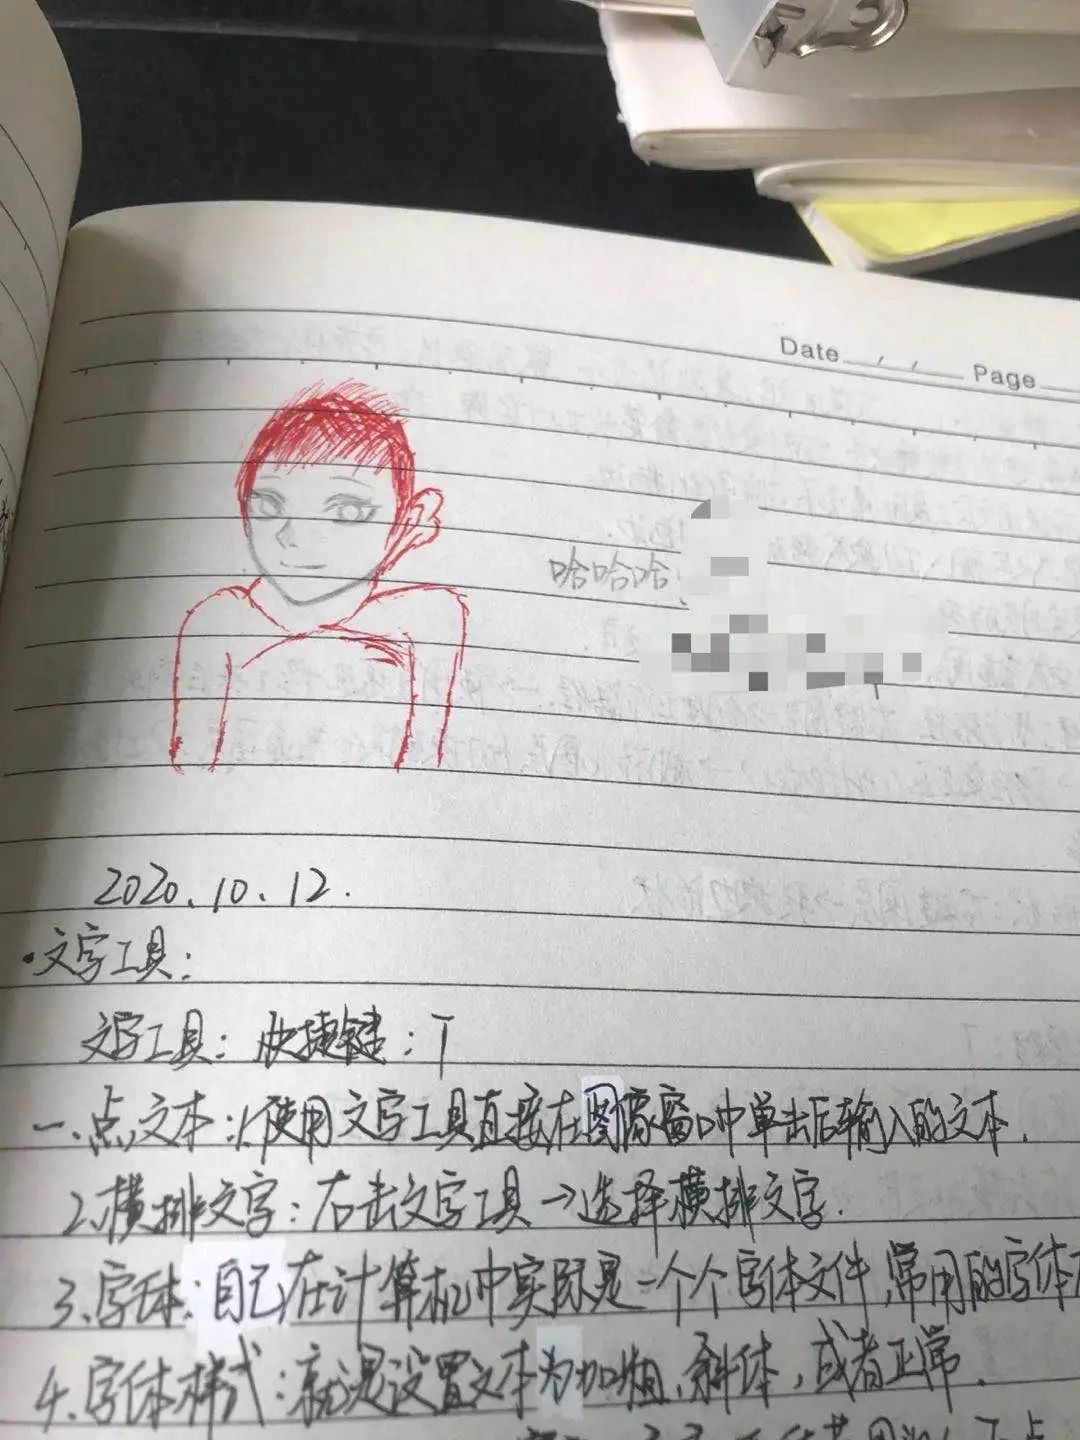 Date / / Page
哈哈哈
2020.10.12.
·文字工具:
文字工具:快捷键:T
一、点文本:1.使用文字工具直接在图像窗口中单击后输入的文本.
2、横排文字:右击文字工具→选择横排文字.
3、字体:自己在计算机中实际是一个个字体文件,常用的字体
4.字体样式:就是设置文本为加粗、斜体,或者正常.